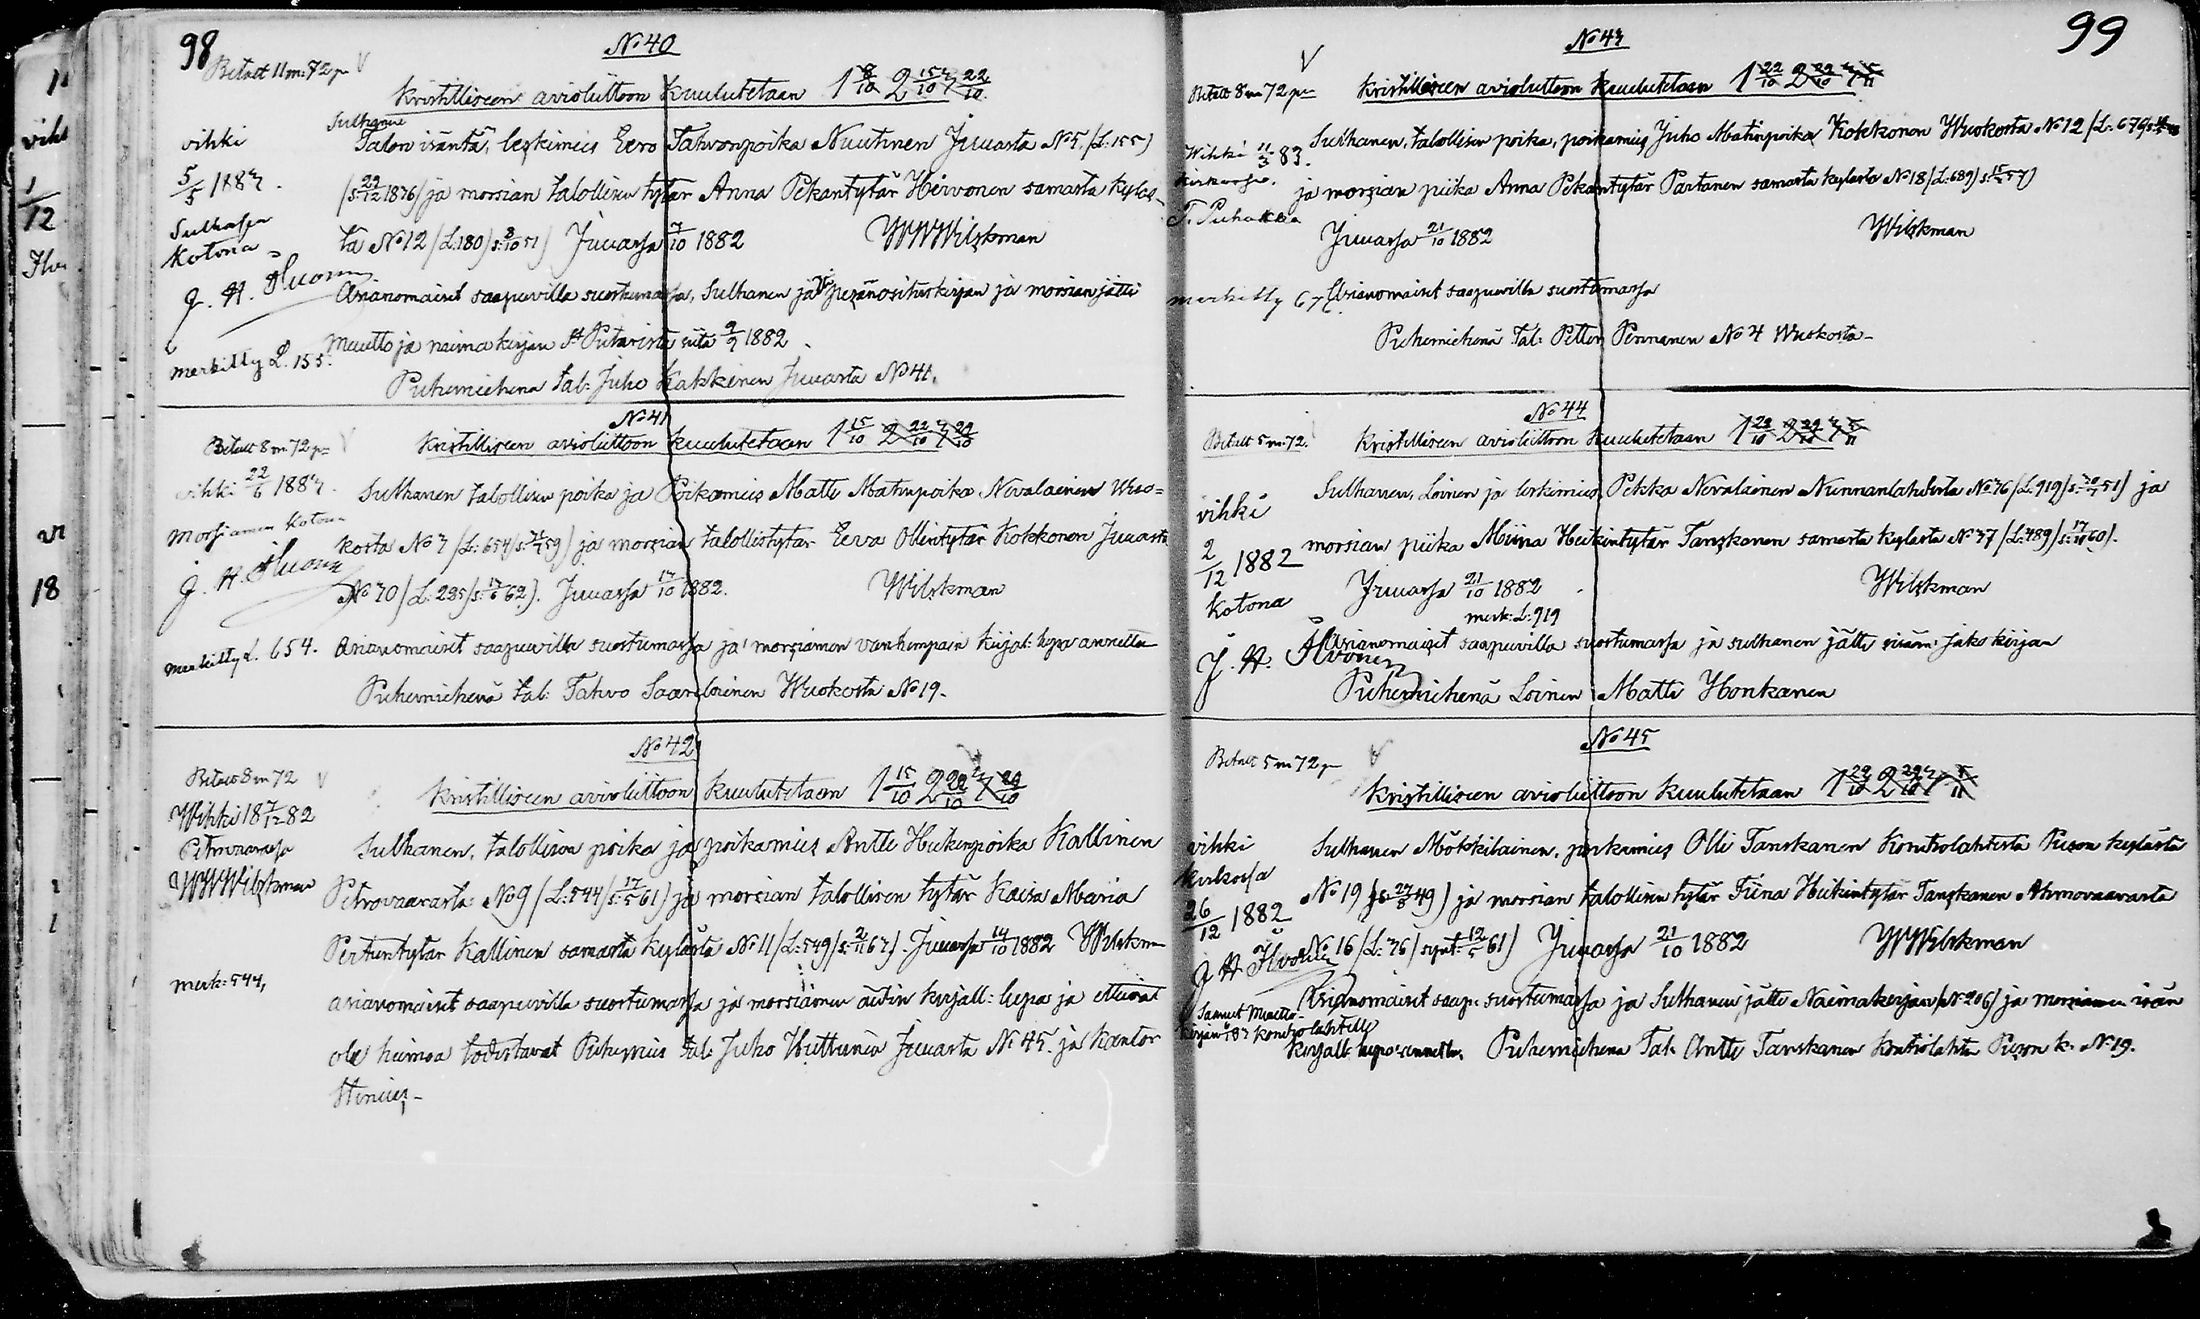 98
No 40
Betalt 11 m: 72 p
Kristilliseen avioliittoon kuulutetaan 1 8/10 2 15/10 3 22/10
vihki
5/5 1883.
Sulhasen
kotona
J. H. Ihvonen
merkitty L. 155.
Sulhanen
Talon isäntä, leskimies Eero Tahvonpoika Nuutinen Juuasta No 5, (L: 155)
(s: 29/12 1876) ja morsian talollisen tytär Anna Pekantytär Hirvonen samasta kyläs-
tä No 12 (L: 180) s: 8/10 51) Juuassa 7/10 1882 WWWilskman
Asianomaiset saapuvilla suostumassa, Sulhanen jätti perinnöserkirjan ja morsian jätti
muutto ja naima kirjan St Pietarista siitä 9/9 1882.
Puhemiehenä tal: Juho Kakkinen Juuasta No 41.
No 41
Betalt 8 m 72 p
Kristilliseen avioliittoon kuulutetaan 1 15/10 2 22/10 3 29/10
vihki 22/6 1883.
Morsiamen kotona
J. H. Ihvonen
merkitty L. 654.
Sulhanen talollisen poika ja Poikamies Matti Matinpoika Nevalainen Wuo=
kosta No 7 (L: 654/s: 59) ja morsian talollistytär Eeva Ollintytär Kokkonen Juuasta
No 70 (L: 225/s: 62). Juuassa 14/10 1882. Wilskman
Asianomaiset saapuvilla suostumassa ja morsiamen vanhempain kirjal: lupa annettu
Puhemiehenä tal: Tahvo Saarelainen Wuokosta No 19.
No 42
Betalt 8 m 72
Kristilliseen avioliittoon kuulutetaan 1 15/10 2 22/10 3 29/10
Wihki 18 7/12 82
Petrovaarassa
WWWilskman
merk: 544,
Sulhanen, talollisen poika ja poikamies Antti Heikinpoika Kallinen
Petrovaarasta No 9 (L: 544/s: 17/5 61) ja morsian talollisen tytär Kaisa Maria
Pertuntytär Kallinen samasta kylästä No 11 (L: 549/s: 2/11 67). Juuassa 14/10 1882 Wilskman
asianomaiset saapuvilla suostumassa ja morsiamen äidin kirjall: lupa ja etteivät
ole heimoa todistavat Puhemies tal: Juho Huttunen Juuasta No 45. ja Kantor
Stenius,
99
No 43
Betalt 8 m 72 p
Kristilliseen avioliittoon kuulutetaan 1 22/10 2 29/10 3 5/11
Wihki 11/3 83.
kirkossa.
T. Puhakka
merkitty 676
Sulhanen, talollisen poika, poikamies Juho Matinpoika Kokkonen Wuokosta No 12 (L: 676/s:
ja morsian piika Anna Pekantytär Partanen samasta kylästä No 18 (L: 689) s: 57)
Juuassa 21/10 1882 Wilskman
Asianomaiset saapuvilla suostumassa
Puhemiehenä Tal: Petter Pennanen No 4 Wuokosta-
No 44
Betalt 5 m: 72.
Kristilliseen avioliittoon kuulutetaan 1 22/10 2 29/10 3 5/11
vihki
2/12 1882
kotona
J. H. Ihvonen
Sulhanen, Loinen ja leskimies Pekka Nevalainen Nunnanlahdesta No 76 (L. 919/s: 51) ja
morsian piika Miina Heikintytär Tanskanen samasta kylästä No 37 (L: 489/s: 60).
Juuassa 21/10 1882 Wilskman
merk: L: 919
Asianomaiset saapuvilla suostumassa ja sulhanen jätti jako kirjan
Puhemiehenä Loinen Matti Honkanen
No 45
Betalt 5 m 72 p
Kristilliseen avioliittoon kuulutetaan 1 22/10 2 29/10 3 5/11
vihki
kirkossa
26/12 1882
J. H. Ihvonen
Saanut Muutto-
kirjan 83 Kontiolahtelle
Sulhanen Mökkiläinen, poikamies Olli Tanskanen Kontiolahdesta Puson kylästä
No 19 (s: 27/3 49) ja morsian talollisen tytär Tiina Heikintytär Tanskanen Ahmovaarasta
No 16 (L: 76/synt: 12/5 61) Juuassa 21/10 1882 WWilskman
Asianomaiset saap: suostumassa ja Sulhanen jätti Naimakirjan (No 206) ja morsiamen isän
kirjall: lupa annettu. Puhemiehenä Tal: Antti Tanskanen Kontiolahti Puson k: No 19.